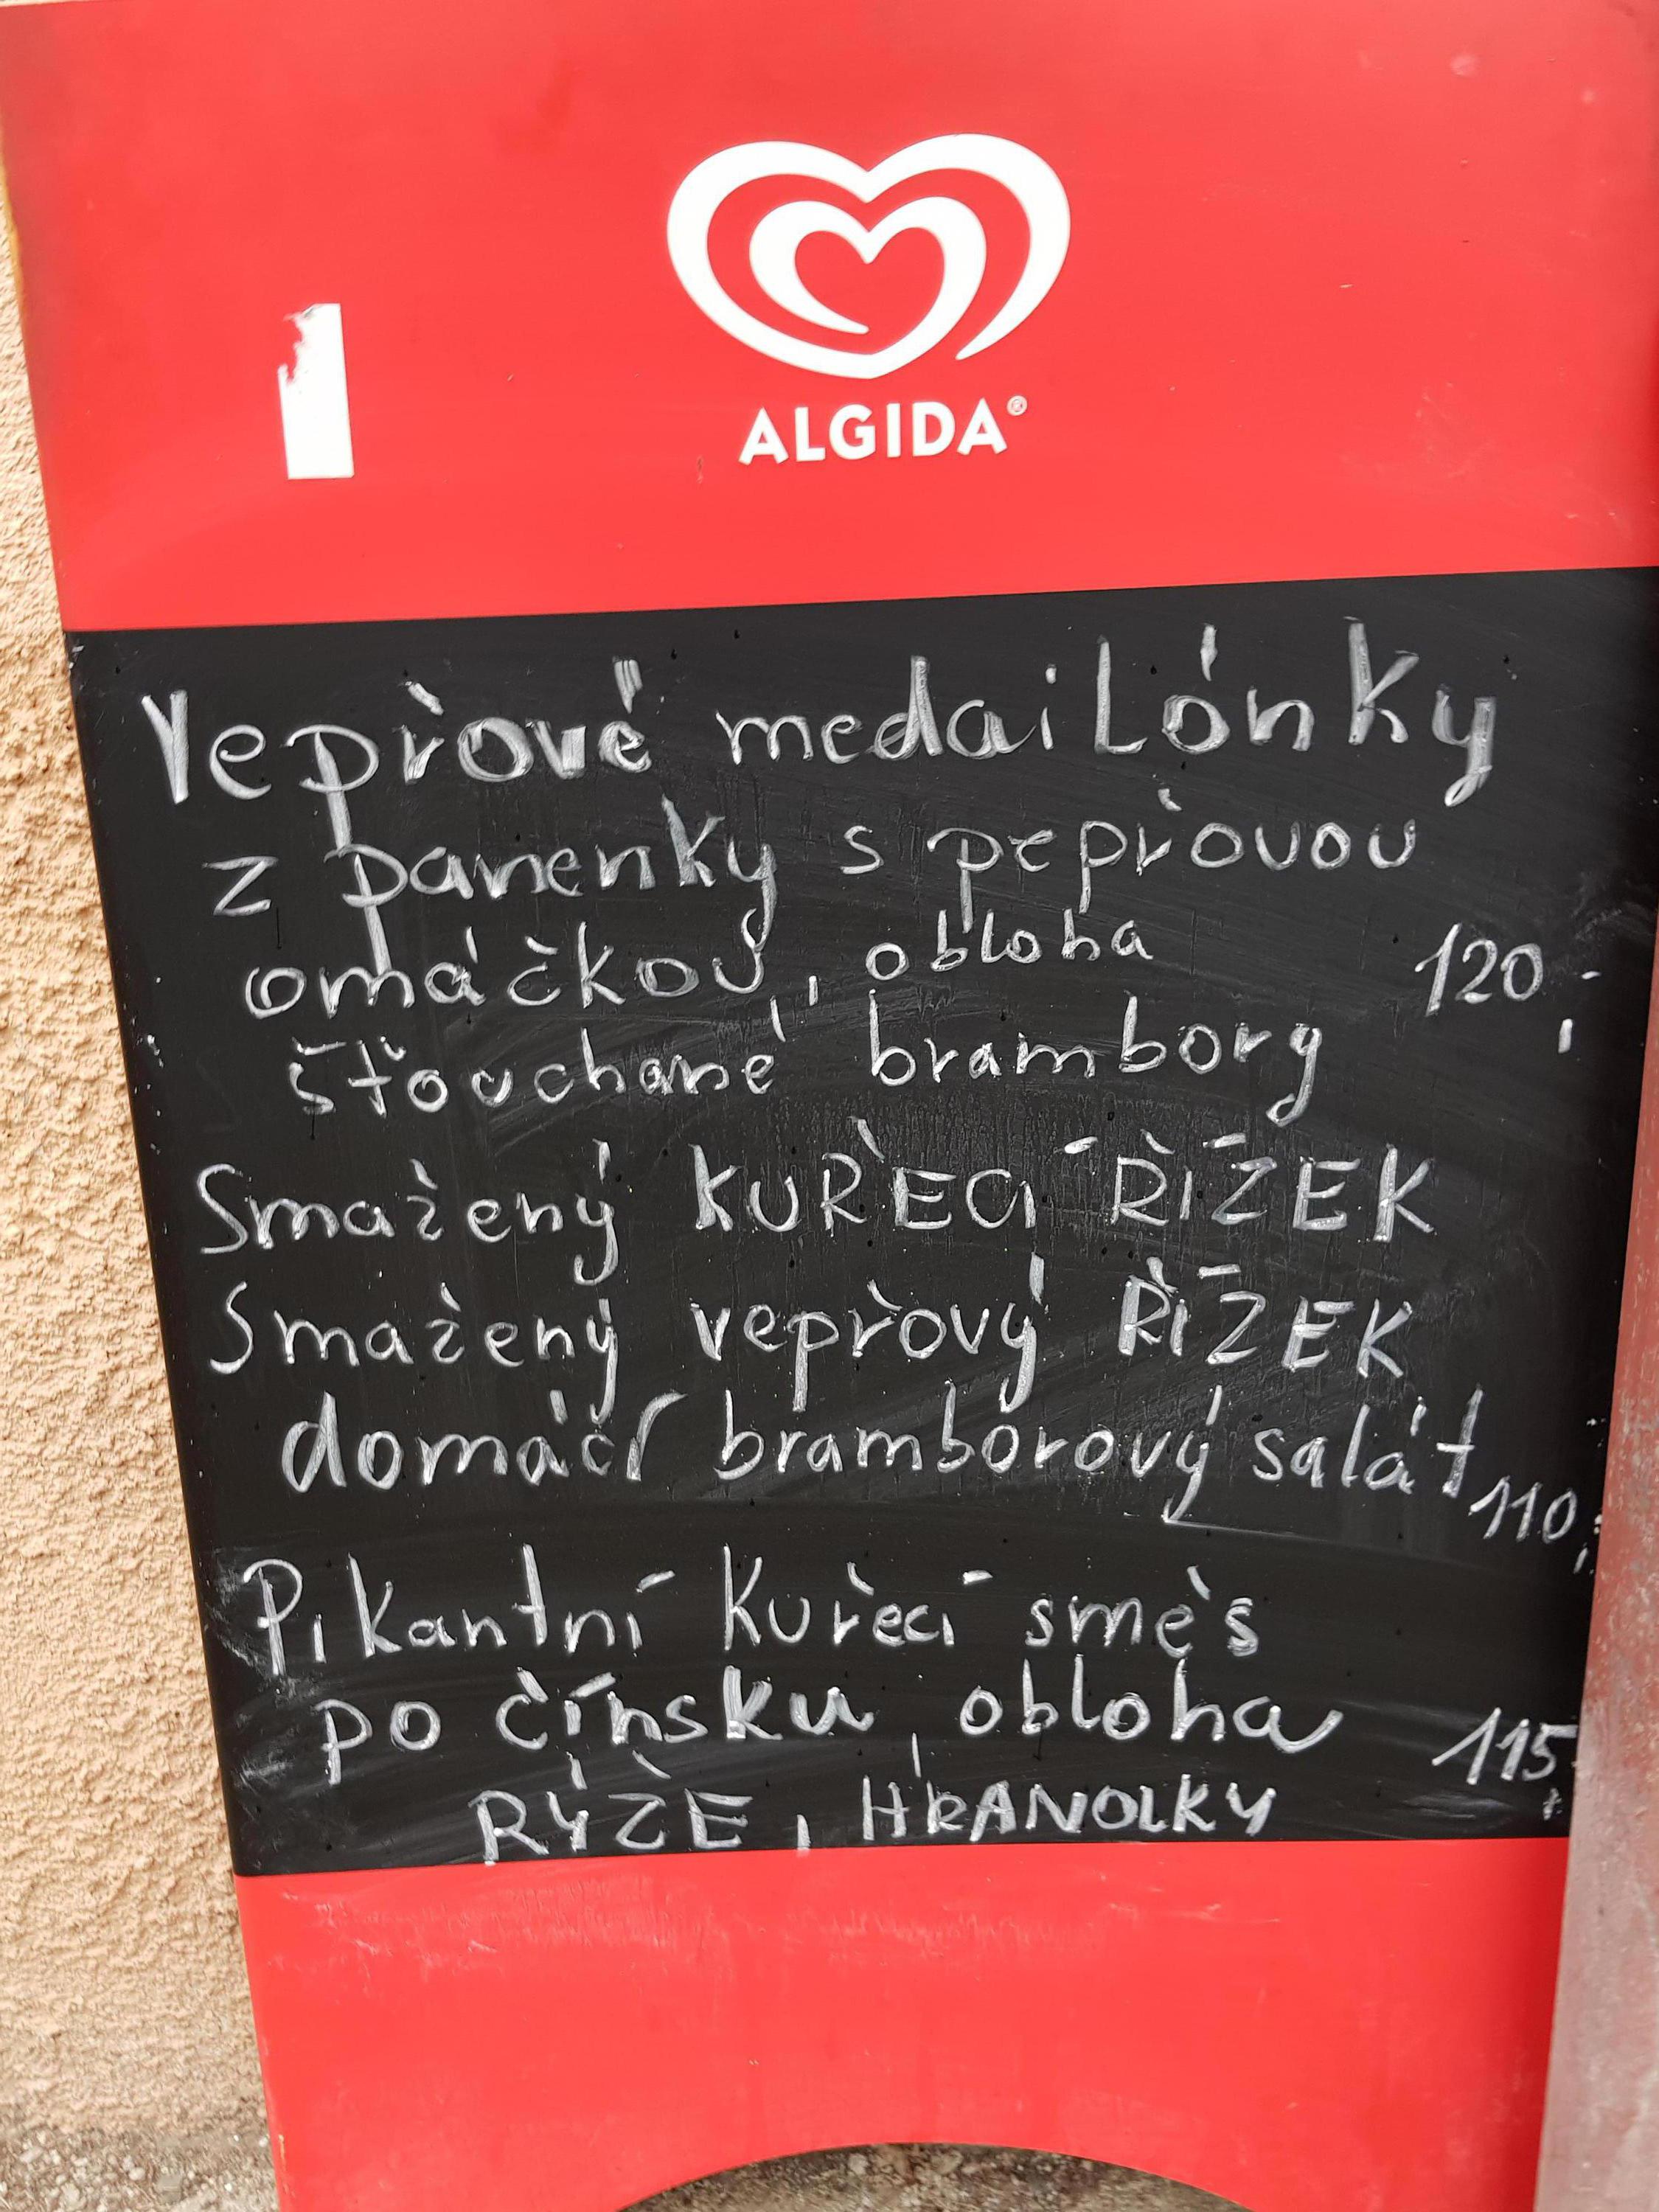 ALGIDA®
Vepřové medailónky
z panenky s pepřovou
omáčkou, obloha 120,-
šťouchané brambory
Smažený KUŘECÍ ŘÍZEK
Smažený vepřový ŘÍZEK
domácí bramborový salát 110,-
Pikantní kuřecí směs
po čínsku, obloha 115,-
RÝŽE, HRANOLKY